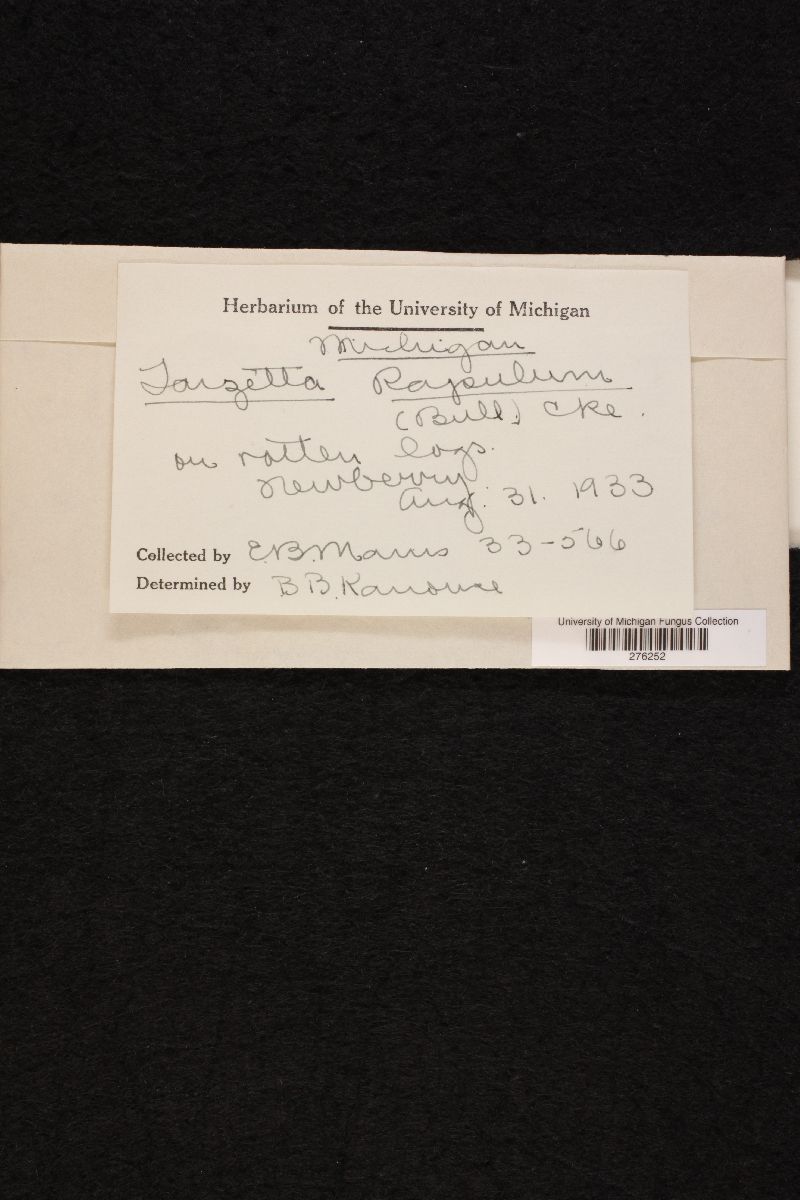 Herbarium of the University of Michigan
Michigan
Tarzetta Rapulum
(Bull.) Cke.
on rotten logs.
Newberry
Aug. 31. 1933
Collected by E.B. Mains 33-566
Determined by B B. Kanouse
University of Michigan Fungus Collection
276252